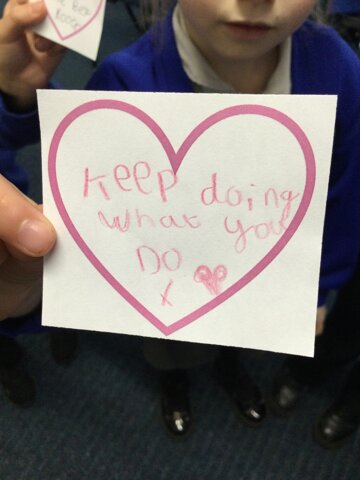 Keep doing
what you
Do
x